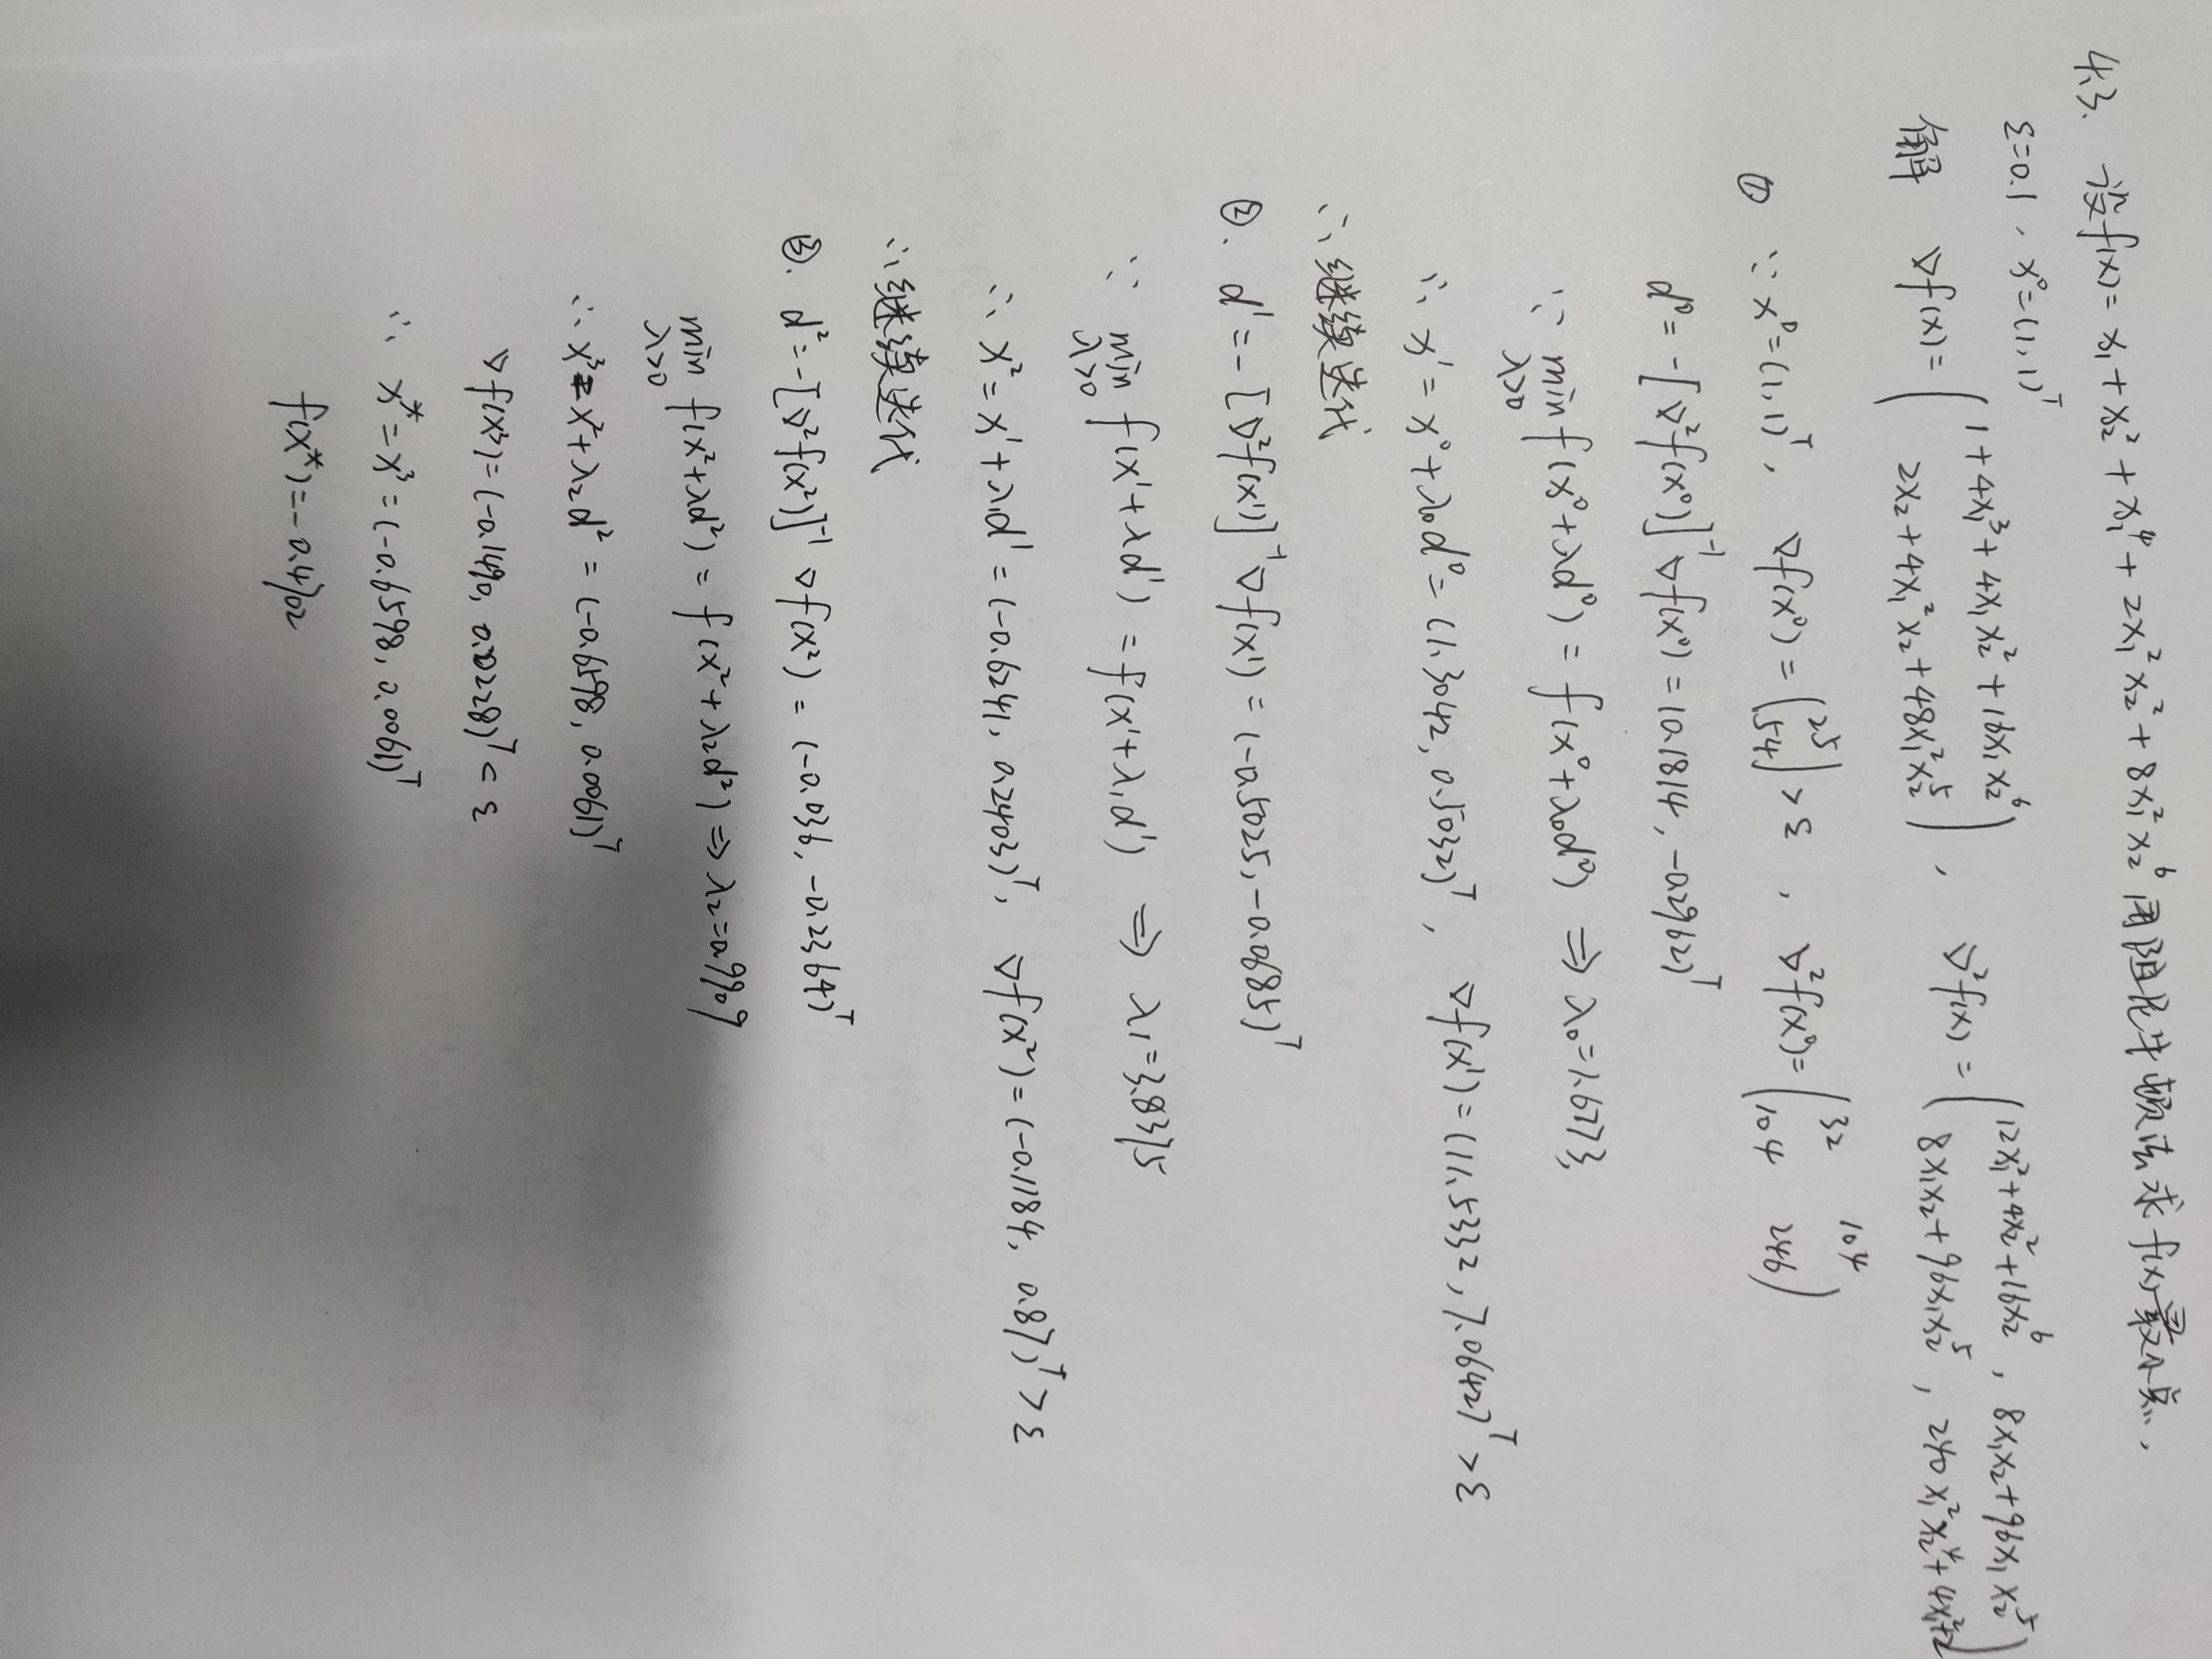 4.3. 设f(x) = x₁ + x₂² + x₁⁴ + 2x₁²x₂² + 8x₁²x₂⁶ 用阻尼牛顿法求f(x)最小点.
ε=0.1, x⁰=(1,1)ᵀ
解 ∇f(x) = (1+4x₁³+4x₁x₂²+16x₁x₂⁶
2x₂+4x₁²x₂+48x₁²x₂⁵), ∇²f(x) = (12x₁²+4x₂²+16x₂⁶, 8x₁x₂+96x₁x₂⁵
8x₁x₂+96x₁x₂⁵, 240x₁²x₂⁴+4x₁²+2)
① ∵ x⁰=(1,1)ᵀ, ∇f(x⁰) = (25
54) > ε, ∇²f(x⁰)=(32 104
104 246)
d⁰ = -[∇²f(x⁰)]⁻¹∇f(x⁰) = (0.1814, -0.2962)ᵀ
∴ min f(x⁰+λd⁰) = f(x⁰+λ₀d⁰) ⇒ λ₀=1.6773
λ>0
∴ x¹ = x⁰+λ₀d⁰ = (1.3042, 0.5032)ᵀ, ∇f(x¹) = (11.5332, 7.0642)ᵀ > ε
∴ 继续迭代
②. d¹ = -[∇²f(x¹)]⁻¹∇f(x¹) = (-0.5025, -0.0685)ᵀ
∵ min f(x¹+λd¹) = f(x¹+λ₁d¹) ⇒ λ₁=3.8375
λ>0
∴ x² = x¹+λ₁d¹ = (-0.6241, 0.2403)ᵀ, ∇f(x²) = (-0.1184, 0.87)ᵀ > ε
∴ 继续迭代
③. d² = -[∇²f(x²)]⁻¹∇f(x²) = (-0.036, -0.2364)ᵀ
min f(x²+λd²) = f(x²+λ₂d²) ⇒ λ₂=0.9909
λ>0
∴ x³ = x²+λ₂d² = (-0.6598, 0.0061)ᵀ
∇f(x³) = (-0.1490, 0.0228)ᵀ < ε
∴ x* = x³ = (-0.6598, 0.0061)ᵀ
f(x*) = -0.4702